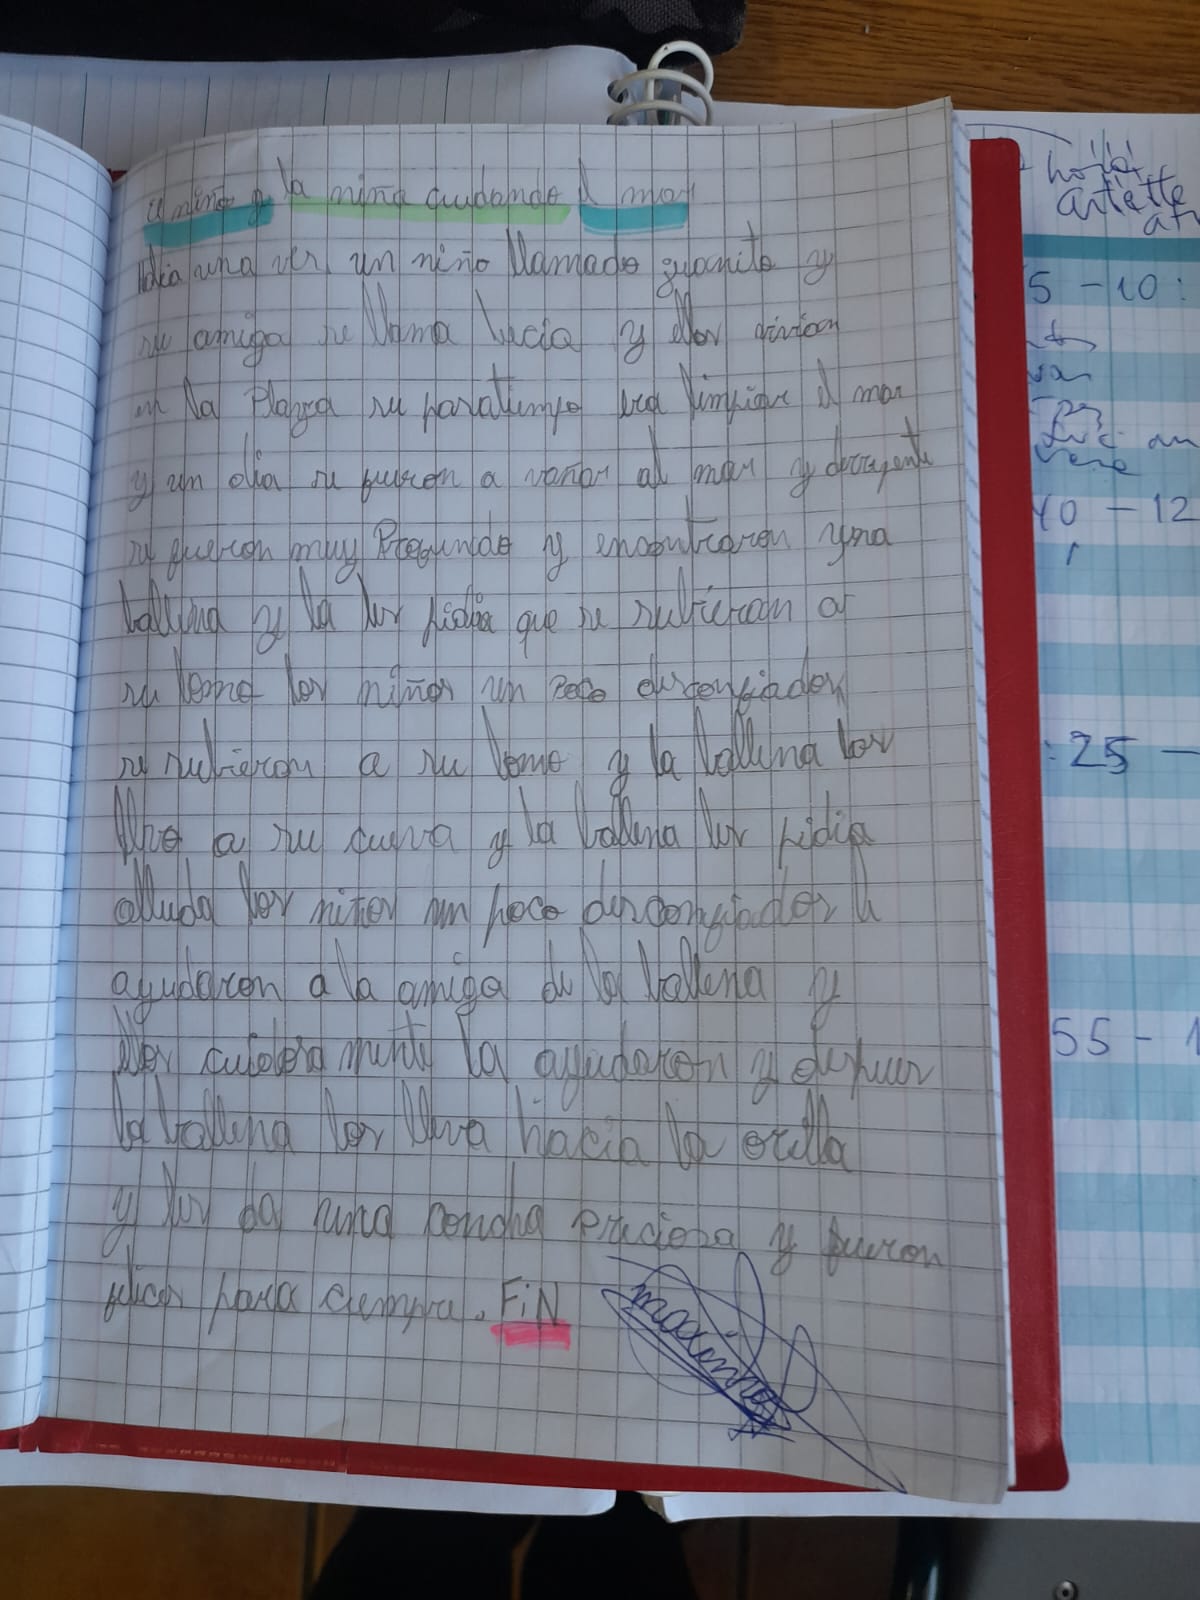 el niño y la niña cuidando el mar
Abia una ves un niño llamado guanito y
su amiga se llama lucia y ellos vivian
en la Playa su pasatiempo era limpiar el mar
y un dia se fueron a vañar al mar y derrepente
se fueron muy Profundo y encontraron una
ballena y la les pidia que se subieran a
su lomo los niños un Poco desconfiados
se subieron a su lomo y la ballena los
llvo a su cueva y la ballena les pidia
alluda los niños un poco desconfiados le
ayudaron a la amiga de la ballena y
ellos cuidosa mente la ayudaron y despues
la ballena los lleva hacia la orilla
y les da una concha Preciosa y fueron
felices para ciempre. FiN
5 - 10:
40 - 12
:25 -
55 - 1